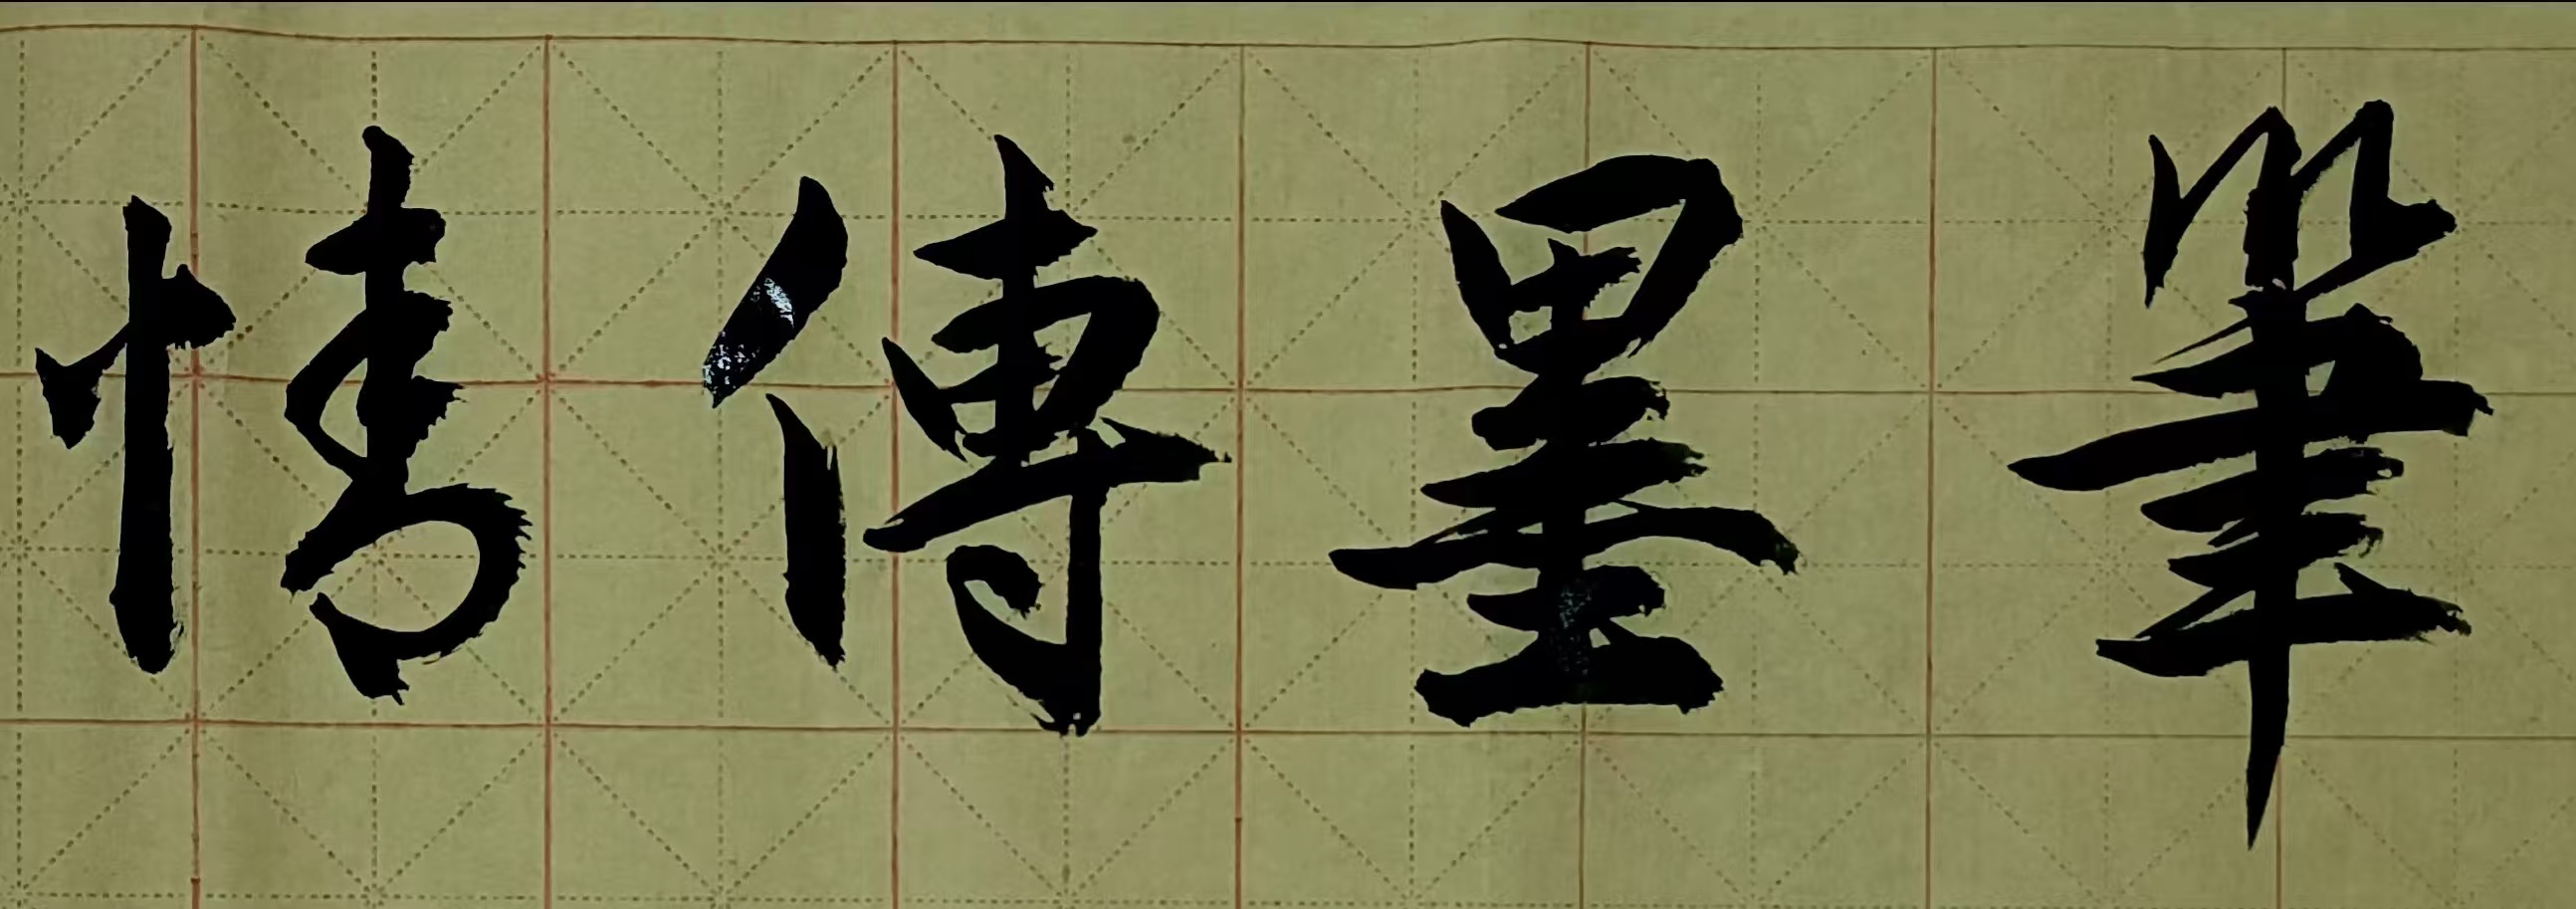 筆墨傳情